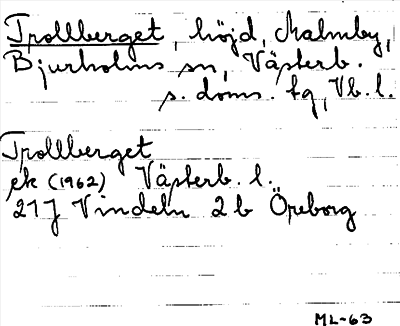 Trollberget, höjd, Malmby,
Bjurholms sn, Västerb.
s. doms. tg, Vb. l.
Trollberget
ek (1962) Västerb. l.
21J Vindeln 2b Öreborg
ML-63